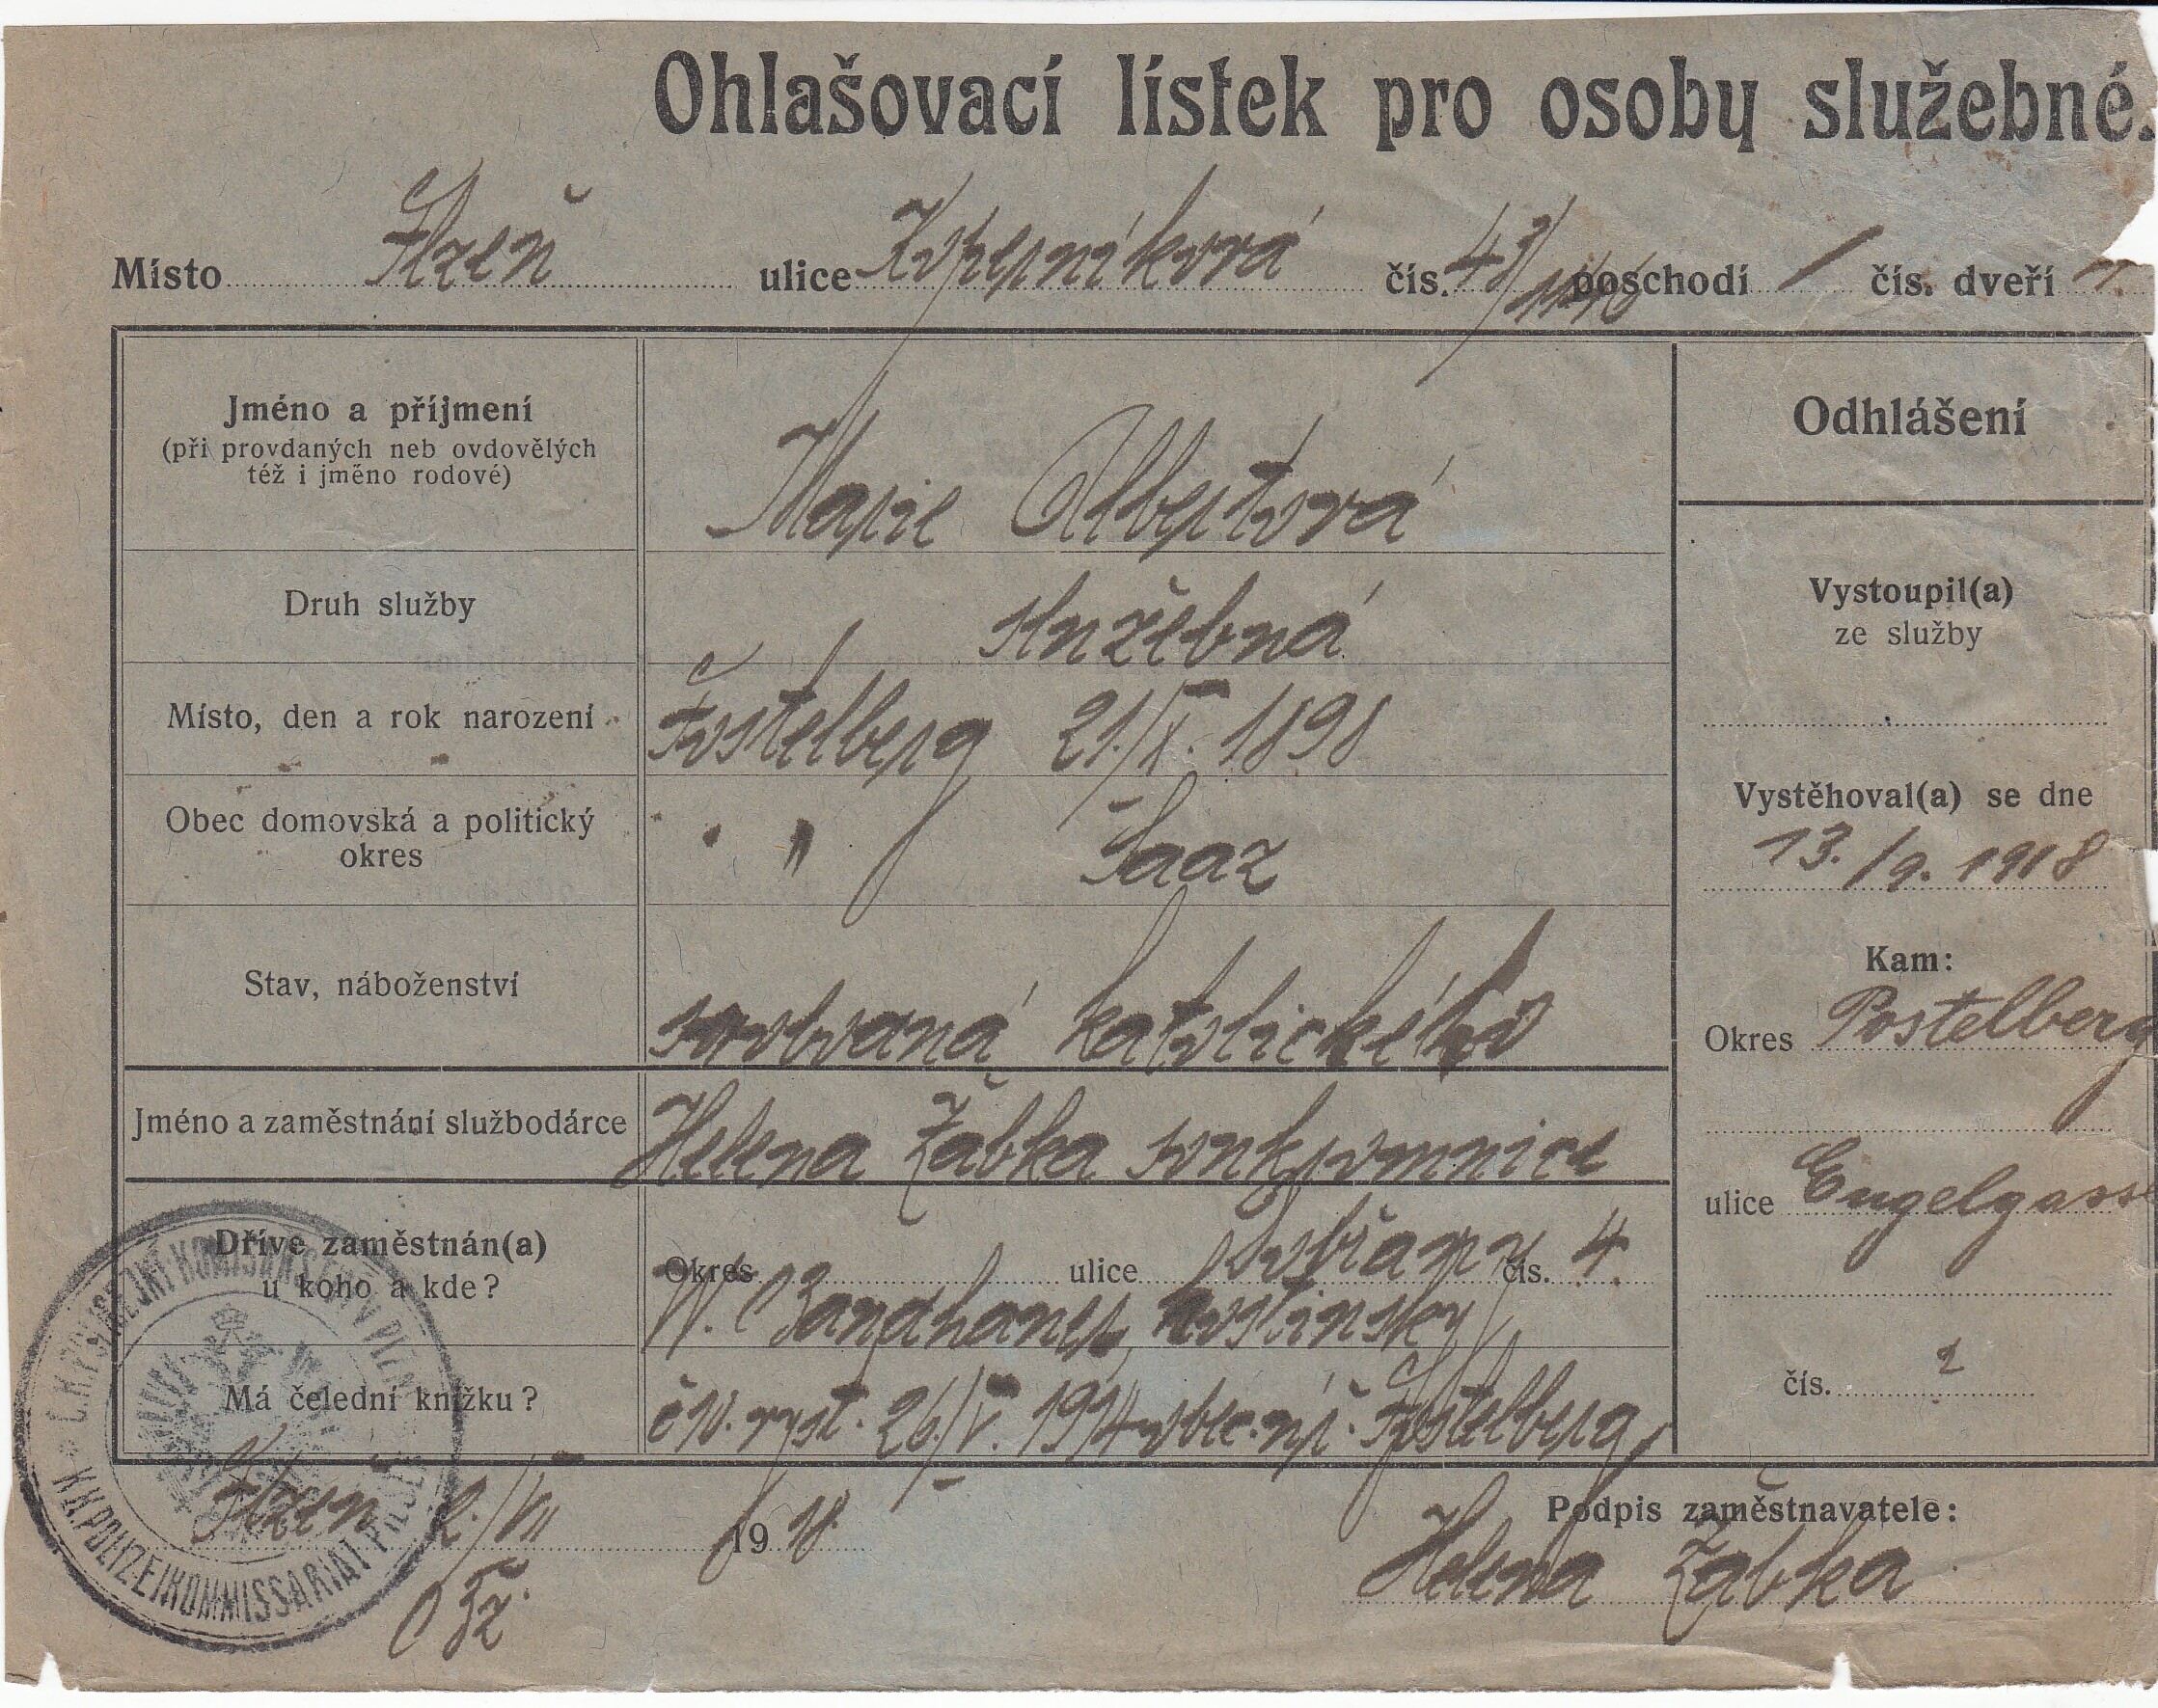 Ohlašovací lístek pro osoby služebné.
Místo Plzeň ulice Koperníková čís. 43/1446 poschodí / čís. dveří 7.
Jméno a příjmení
(při provdaných neb ovdovělých
též i jméno rodové)
Marie Albertová
Druh služby
služebná
Místo, den a rok narození
Postelberg 21./X. 1898
Obec domovská a politický
okres
" Saaz
Stav, náboženství
svobodná katolického
Jméno a zaměstnání službodárce
Helena Žábka soukromnice
Dříve zaměstnán(a)
u koho a kde?
Okres ulice čís. 4.
Má čelední knížku?
č 10. vyst. 26./V. 1914 obec. úř. Postelberg
Odhlášení
Vystoupil(a)
ze služby
Vystěhoval(a) se dne
13./9. 1918
Kam:
Okres Postelberg
ulice Engelgasse
čís. 2
Plzeň 2./VII 1918.
Podpis zaměstnavatele:
Helena Žábka
C.K. POLICEJNÍ KOMISAŘSTVÍ V PLZNI
K.K. POLIZEIKOMMISSARIAT PILSEN